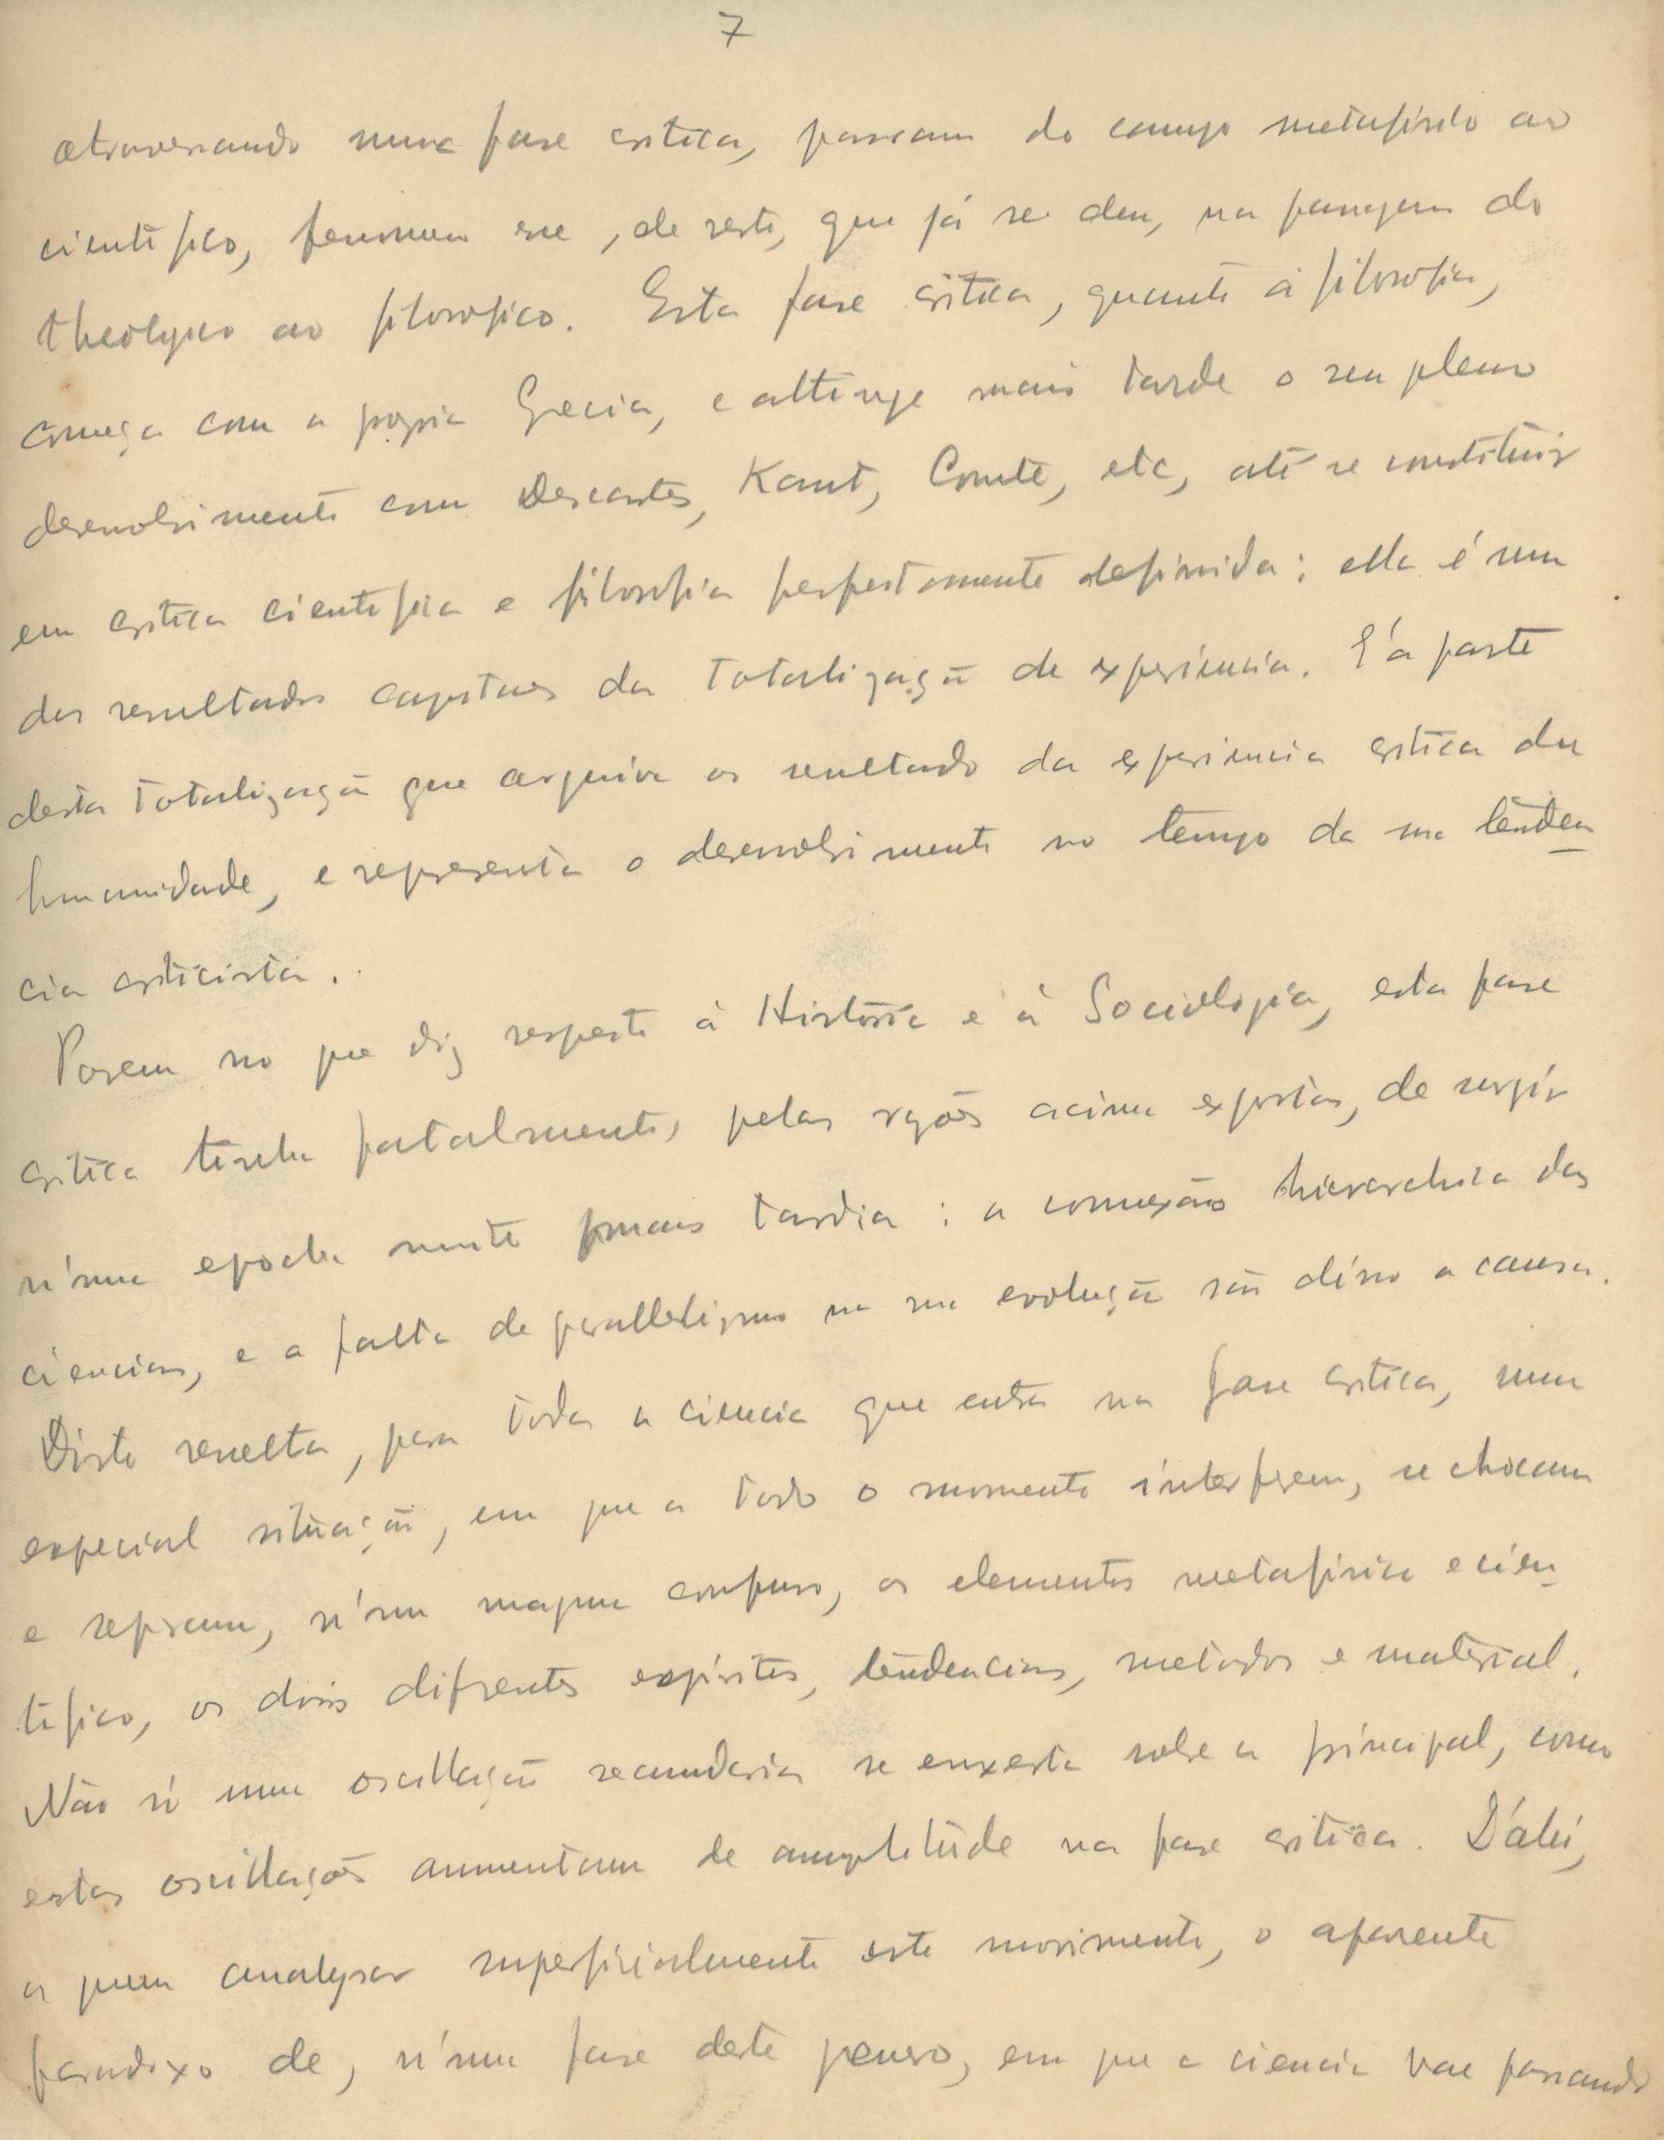 7
atravessando numa fase critica, passam do campo metafisico ao
cientifico, fenomeno esse, de resto, que já se deu, na passagem do
theologico ao filosofico. Esta fase critica, quanto á filosofia,
começa com a propria Grecia, e attinge mais tarde o seu pleno
desenvolvimento com Descartes, Kant, Comte, etc, até se constituir
em critica cientifica e filosofia perfeitamente definida; ella é um
dos resultados capitaes da totalização de experiencia. E' a parte
desta totalização que arquiva os resultado da experiencia critica da
humanidade, e representa o desenvolvimento no tempo da sua tenden
cia criticista.
Porem no que diz respeito á Historia e á Sociologia, esta fase
critica tinha fatalmente, pelas rasões acima expostas, de surgir
n'uma epocha muito mais tardia: a connexão hierarchica das
ciencias, e a falta de parallelismo na sua evolução são disso a causa.
Disto resulta, para toda a ciencia que entra na fase critica, uma
especial situação, em que a todo o momento interferem, se chocam
e refream, n'um magma confuso, os elementos metafisico e cien
tifico, os dois diferentes espiritos, tendencias, metodos e material.
Não só uma oscillação secundaria se enxerta sobre a principal, como
estas oscillações aumentam de amplitude na fase critica. D'ahi,
a quem analysar superficialmente este movimento, o aparente
paradoxo de, n'uma fase deste penoso, em que a ciencia vae passando